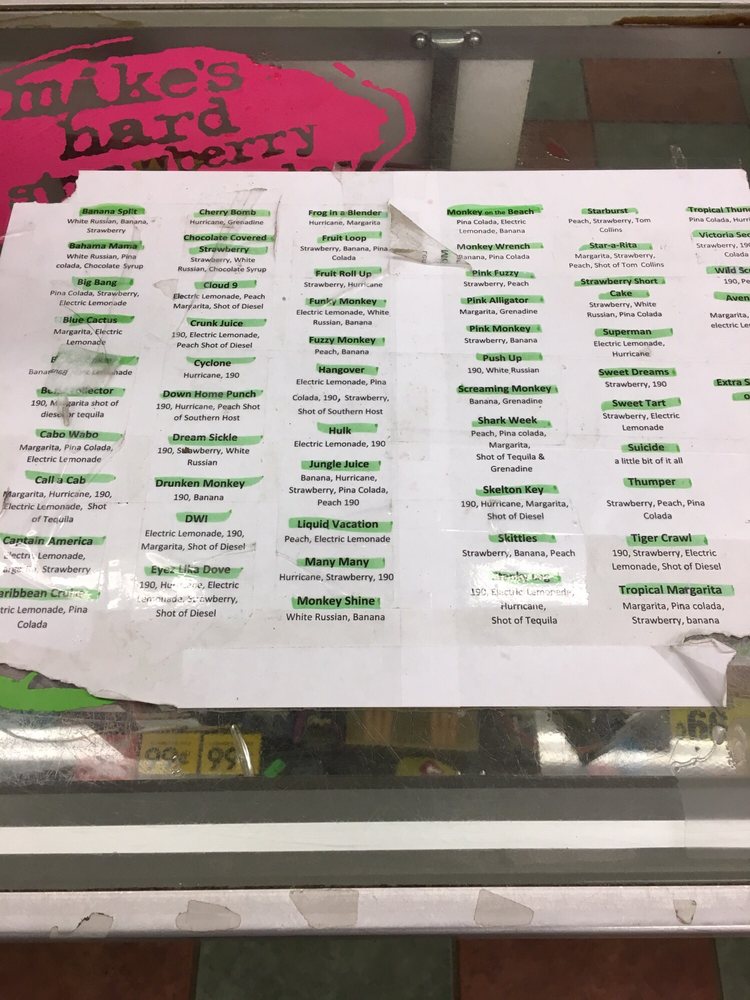 mike's
hard
strawberry
Banana Split
White Russian, Banana,
Strawberry
Bahama Mama
White Russian, Pina
colada, Chocolate Syrup
Big Bang
Pina Colada, Strawberry,
Electric Lemonade
Blue Cactus
Margarita, Electric
Lemonade
Lemonade
190, Margarita shot of
or tequila
Cabo Wabo
Margarita, Pina Colada,
Electric Lemonade
Call a Cab
Margarita, Hurricane, 190,
Electric Lemonade, Shot
of Tequila
Captain America
Electric Lemonade,
Strawberry
Lemonade, Pina
Colada
Cherry Bomb
Hurricane, Grenadine
Chocolate Covered
Strawberry
Strawberry, White
Russian, Chocolate Syrup
Cloud 9
Electric Lemonade, Peach
Margarita, Shot of Diesel
Crunk Juice
190, Electric Lemonade,
Peach Shot of Diesel
Cyclone
Hurricane, 190
Down Home Punch
190, Hurricane, Peach Shot
of Southern Host
Dream Sickle
190, Strawberry, White
Russian
Drunken Monkey
190, Banana
DWI
Electric Lemonade, 190,
Margarita, Shot of Diesel
Eyez Lika Dove
190, Hurricane, Electric
Lemonade, Strawberry,
Shot of Diesel
Frog in a Blender
Hurricane, Margarita
Fruit Loop
Strawberry, Banana, Pina
Colada
Fruit Roll Up
Strawberry, Hurricane
Funky Monkey
Electric Lemonade, White
Russian, Banana
Fuzzy Monkey
Peach, Banana
Hangover
Electric Lemonade, Pina
Colada, 190, Strawberry,
Shot of Southern Host
Hulk
Electric Lemonade, 190
Jungle Juice
Banana, Hurricane,
Strawberry, Pina Colada,
Peach 190
Liquid Vacation
Peach, Electric Lemonade
Many Many
Hurricane, Strawberry, 190
Monkey Shine
White Russian, Banana
Monkey on the Beach
Pina Colada, Electric
Lemonade, Banana
Monkey Wrench
Banana, Pina Colada
Pink Fuzzy
Strawberry, Peach
Pink Alligator
Margarita, Grenadine
Pink Monkey
Strawberry, Banana
Push Up
190, White Russian
Screaming Monkey
Banana, Grenadine
Shark Week
Peach, Pina colada,
Margarita,
Shot of Tequila &
Grenadine
Skelton Key
190, Hurricane, Margarita,
Shot of Diesel
Skittles
Strawberry, Banana, Peach
190, Electric Lemonade,
Hurricane,
Shot of Tequila
Starburst
Peach, Strawberry, Tom
Collins
Star-a-Rita
Margarita, Strawberry,
Peach, Shot of Tom Collins
Strawberry Short
Cake
Strawberry, White
Russian, Pina Colada
Superman
Electric Lemonade,
Hurricane
Sweet Dreams
Strawberry, 190
Sweet Tart
Strawberry, Electric
Lemonade
Suicide
a little bit of it all
Thumper
Strawberry, Peach, Pina
Colada
Tiger Crawl
190, Strawberry, Electric
Lemonade, Shot of Diesel
Tropical Margarita
Margarita, Pina colada,
Strawberry, banana
Tropical
Pina Colada,
Victoria
Strawberry,
Colada
Wild
190,
Margarita,
electric
Extra
99¢ 99